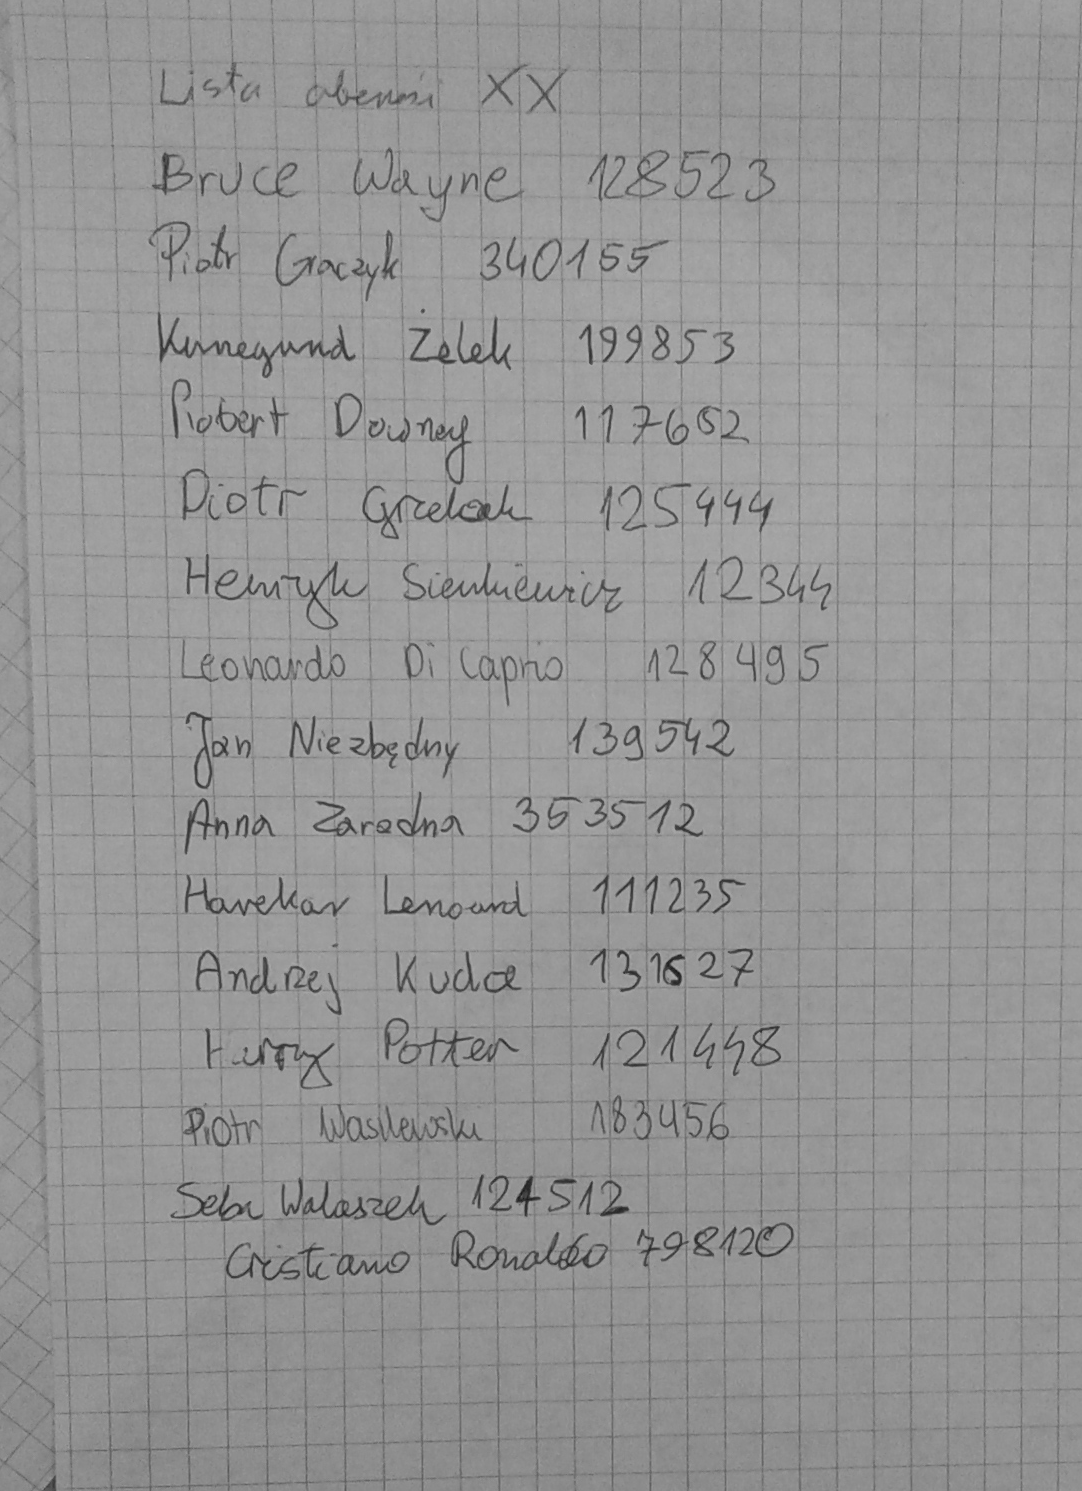 Lista obecności XX
Bruce Wayne 128523
Piotr Graczyk 340155
Kunegund Żelek 199853
Robert Downey 117652
Piotr Grzelak 125444
Henryk Sienkiewicz 12344
Leonardo Di Caprio 128495
Jan Niezbędny 139542
Anna Zaradna 353512
Havekar Lenoard 111235
Andrzej Kudra 131527
Harry Potter 121448
Piotr Wasilewski 183456
Seba Walaszek 124512
Cristiano Ronaldo 798120